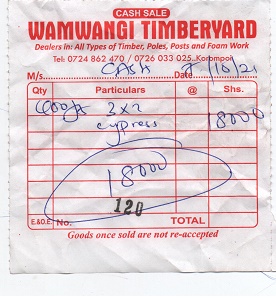 CASH SALE
WAMWANGI TIMBERYARD
Dealers in: All Types of Timber, Poles, Posts and Foam Work
Tel: 0724 862 470 / 0726 033 025 Korompoi
M/s CASH Date 7/10/21
Qty Particulars @ Shs.
3x2 18000
cypress
18000
120
E.&O.E. No. TOTAL
Goods once sold are not re-accepted